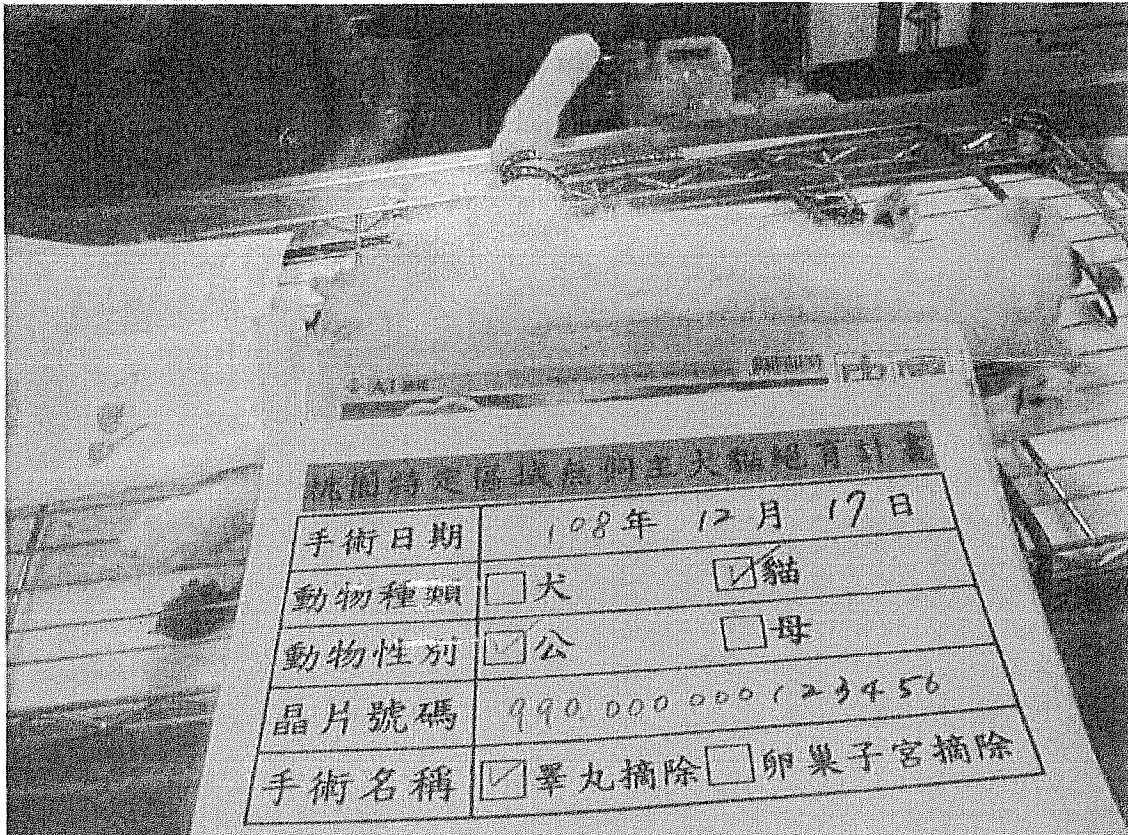 桃園特定區域無飼主犬貓絕育計畫
手術日期 108年 12月 17日
動物種類 □犬 ☑貓
動物性別 ☑公 □母
晶片號碼 990 000 000 123456
手術名稱 ☑睪丸摘除 □卵巢子宮摘除